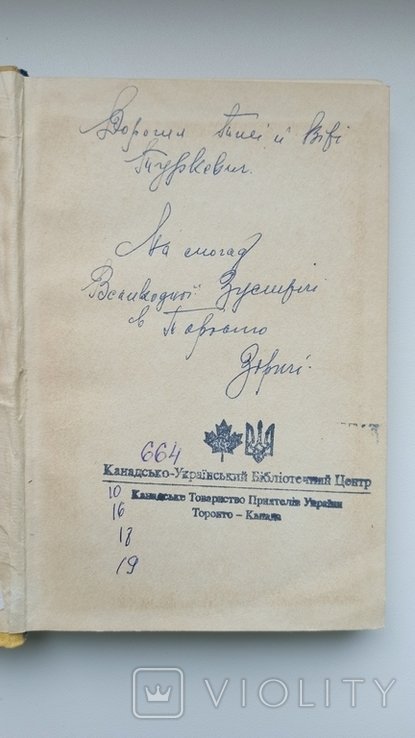 Дорогим Тисі й Віві
Туркевич.
На спогад
Великодної Зустрічі
в Торонто
Зоричі.
664
Канадсько-Український Бібліотечний Центр
Канадське Товариство Приятелів України
Торонто – Канада
10
16
18
19
VIOLITY